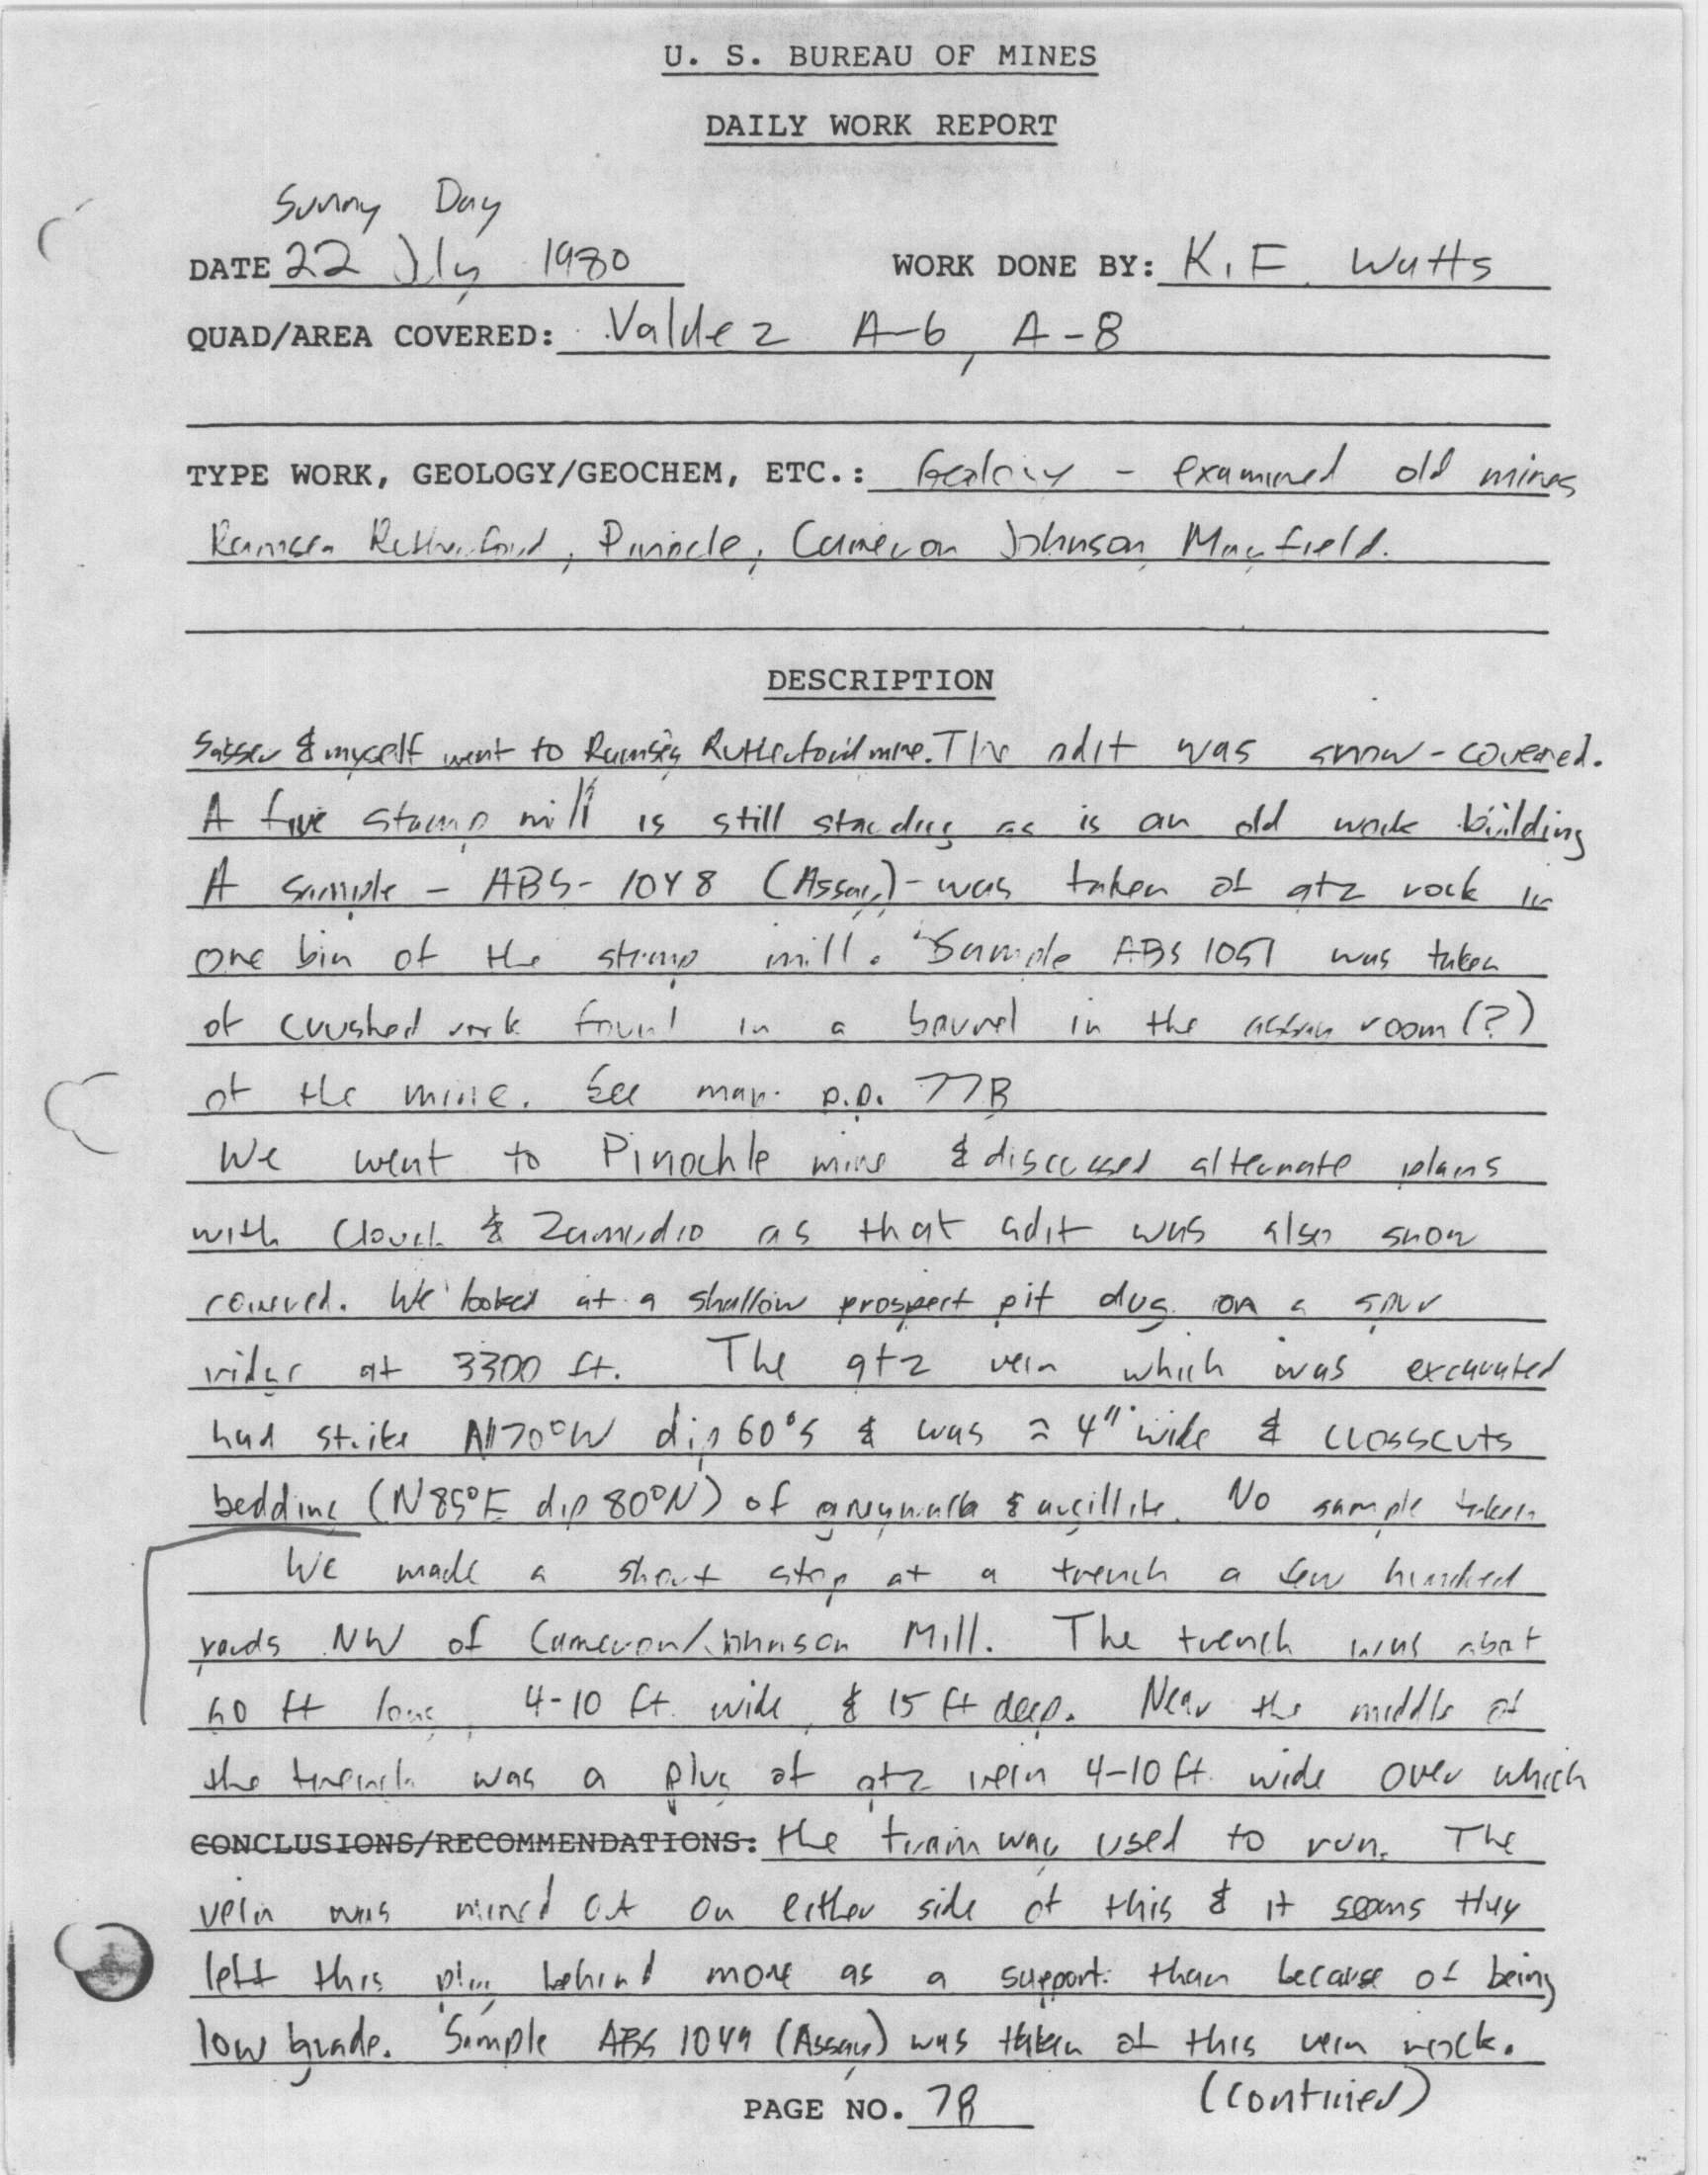 U. S. BUREAU OF MINES
DAILY WORK REPORT
Sunny Day
DATE 22 July 1980 WORK DONE BY: K. F. Watts
QUAD/AREA COVERED: Valdez A-6, A-8
TYPE WORK, GEOLOGY/GEOCHEM, ETC.: Geology - examined old mines
Ramsey Rutherford, Pinocle, Cameron Johnson, Mayfield.
DESCRIPTION
Sasser & myself went to Ramsey Rutherford mine. The adit was snow-covered.
A five stamp mill is still standing as is an old work building
A sample - ABS-1048 (Assay) - was taken of qtz rock in
one bin of the stamp mill. Sample ABS 1051 was taken
of crushed rock found in a barrel in the assay room (?)
of the mine. See map p.p. 77B
We went to Pinochle mine & discussed alternate plans
with Clouch & Zamudio as that adit was also snow
covered. We looked at a shallow prospect pit dug on a spur
ridge at 3300 ft. The qtz vein which was excavated
had strike N70°W dip 60°S & was ≈ 4" wide & crosscuts
bedding (N85°E dip 80°N) of greywacke & argillite. No sample taken
We made a short stop at a trench a few hundred
yards NW of Cameron/Johnson Mill. The trench was about
60 ft long, 4-10 ft. wide, & 15 ft deep. Near the middle of
the trench was a plug of qtz vein 4-10 ft. wide over which
CONCLUSIONS/RECOMMENDATIONS: the tramway used to run. The
vein was mined out on either side of this & it seems they
left this plug behind more as a support than because of being
low grade. Sample ABS 1049 (Assay) was taken of this vein rock.
(continued)
PAGE NO. 78